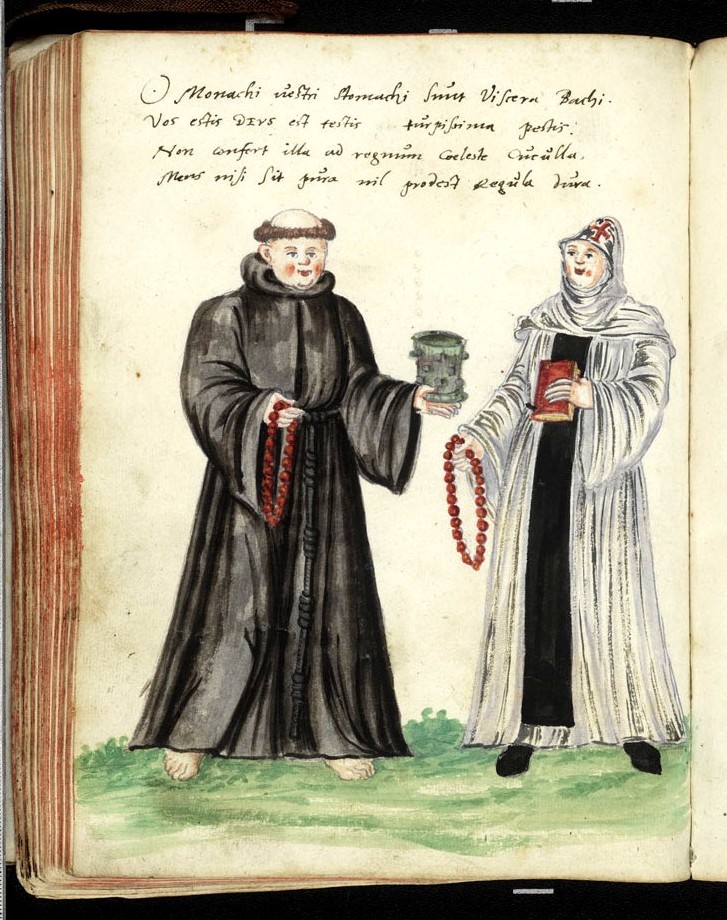 O Monachi vestri stomachi sunt Viscera Bachi.
Vos estis DEVS est testis turpissima pestis:
Non confert illa ad regnum Coeleste Cuculla,
Mens nisi sit pura nil prodest Regula dura.